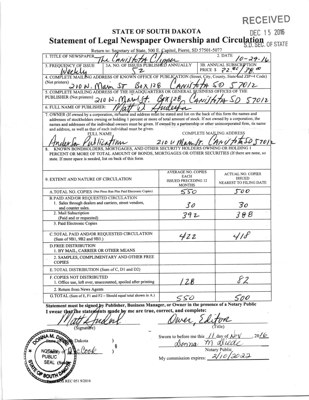 RECEIVED
DEC 15 2016
S.D. SEC. OF STATE
STATE OF SOUTH DAKOTA
Statement of Legal Newspaper Ownership and Circulation
Return to: Secretary of State, 500 E. Capitol, Pierre, SD 57501-5077
1. TITLE OF NEWSPAPER The Canistota Clipper
2. DATE 10-29-16
3. FREQUENCY OF ISSUE Weekly
3A. NO. OF ISSUES PUBLISHED ANNUALLY 52
3B. ANNUAL SUBSCRIPTION PRICE $
4. COMPLETE MAILING ADDRESS OF KNOWN OFFICE OF PUBLICATION (Street, City, County, State and ZIP+4 Code) (Not printers)
210 W. Main ST Box 128 Canistota SD 57012
5. COMPLETE MAILING ADDRESS OF THE HEADQUARTERS OR GENERAL BUSINESS OFFICES OF THE PUBLISHER (Not printers)
210 W. Main St. Box 128, Canistota SD 57012
6. FULL NAME OF PUBLISHER: Matt Anderson
7. OWNER (If owned by a corporation, its name and address must be stated and also
FULL NAME
COMPLETE MAILING ADDRESS
Anderson Publications
210 W Main St. Canistota SD 57012
8. KNOWN BONDHOLDERS, MORTGAGEES, AND OTHER SECURITY HOLDERS OWNING OR HOLDING 1 PERCENT OR MORE OF TOTAL AMOUNT OF BONDS, MORTGAGES OR OTHER SECURITIES (If there are none, so state. If more space is needed, list on back of this form.
9. EXTENT AND NATURE OF CIRCULATION
AVERAGE NO. COPIES EACH ISSUED PRECEDING 12 MONTHS
ACTUAL NO. COPIES ISSUED NEAREST TO FILING DATE
A. TOTAL NO. COPIES (Net Press Run Plus Paid Electronic Copies) 550 500
B. PAID AND/OR REQUESTED CIRCULATION
1. Sales through dealers and carriers, street vendors, and counter sales. 30 30
2. Mail Subscription (Paid and or requested) 392 388
3. Paid Electronic Copies
C. TOTAL PAID AND/OR REQUESTED CIRCULATION (Sum of 9B1, 9B2 and 9B3.) 422 418
D. FREE DISTRIBUTION
1. BY MAIL, CARRIER OR OTHER MEANS
2. SAMPLES, COMPLIMENTARY AND OTHER FREE COPIES
E. TOTAL DISTRIBUTION (Sum of C, D1 and D2)
F. COPIES NOT DISTRIBUTED
1. Office use, left over, unaccounted, spoiled after printing 128 82
2. Return from News Agents
G. TOTAL (Sum of E, F1 and F2 - Should equal total shown in A.) 550 500
Statement must be signed by Publisher, Business Manager, or Owner in the presence of a Notary Public
I swear that the statements made by me are true, correct, and complete:
Matt Anderson
(Signature)
Owner, Editor
(Title)
Sworn to before me this 11 day of NOV 2016
Notary Public
My commission expires: 2/10/2022
DONNA M.
NOTARY PUBLIC
SEAL
SOUTH DAKOTA